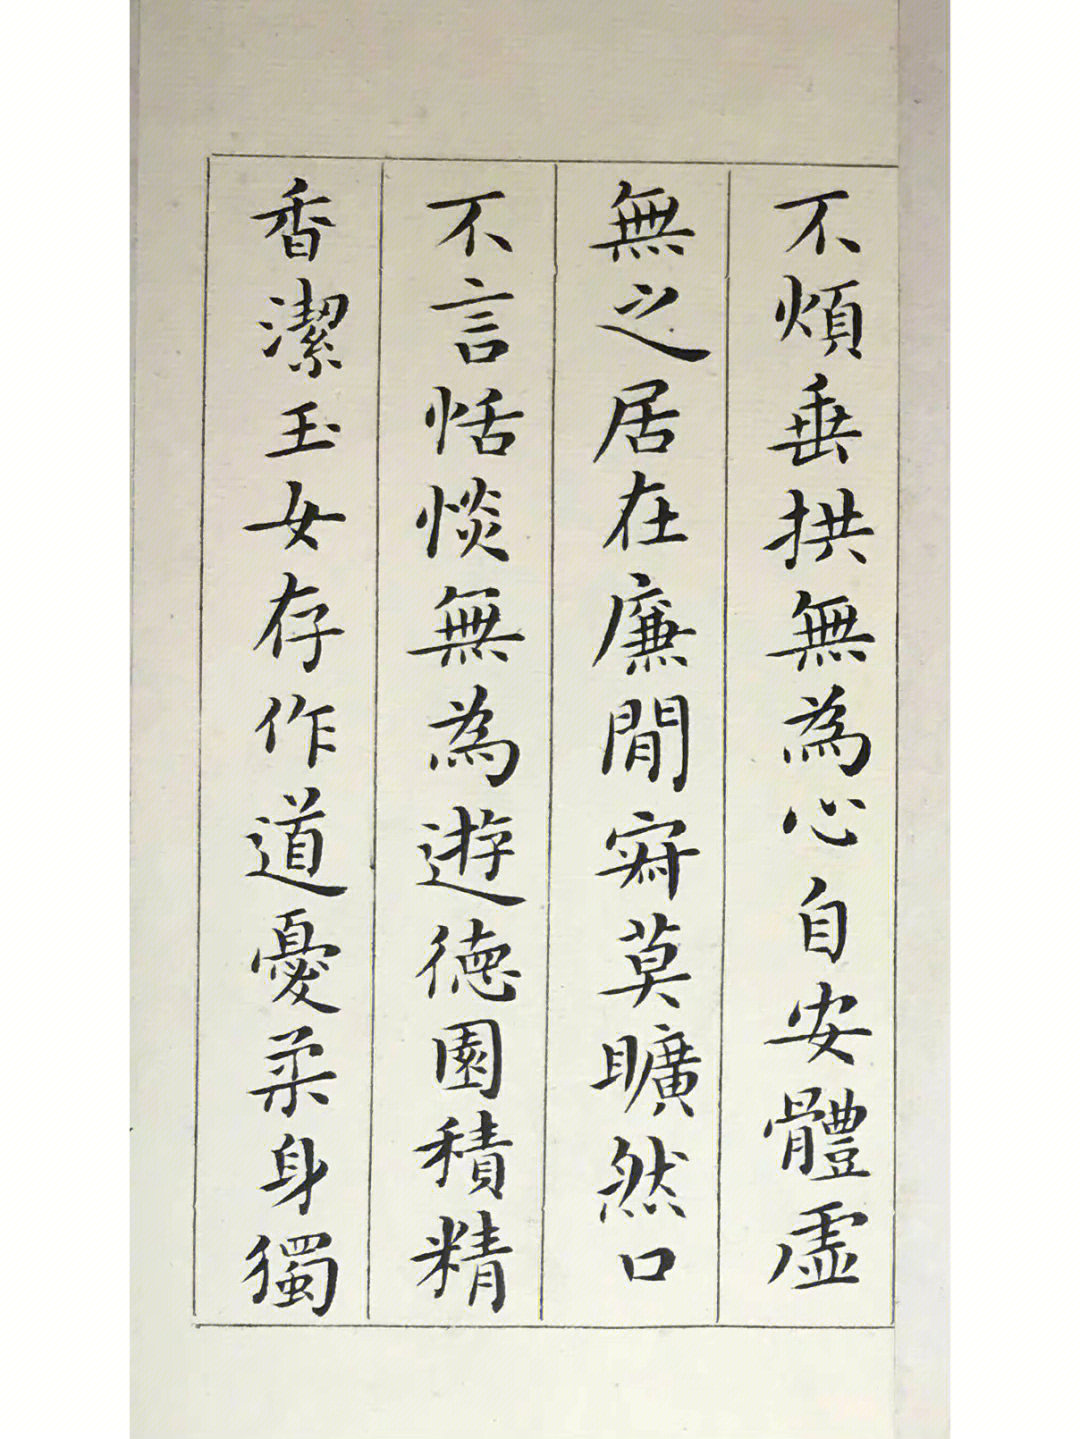 不煩垂拱無為心自安體虛
無之居在廉閒寂莫曠然口
不言恬惔無為遊德園積精
香潔玉女存作道憂柔身獨